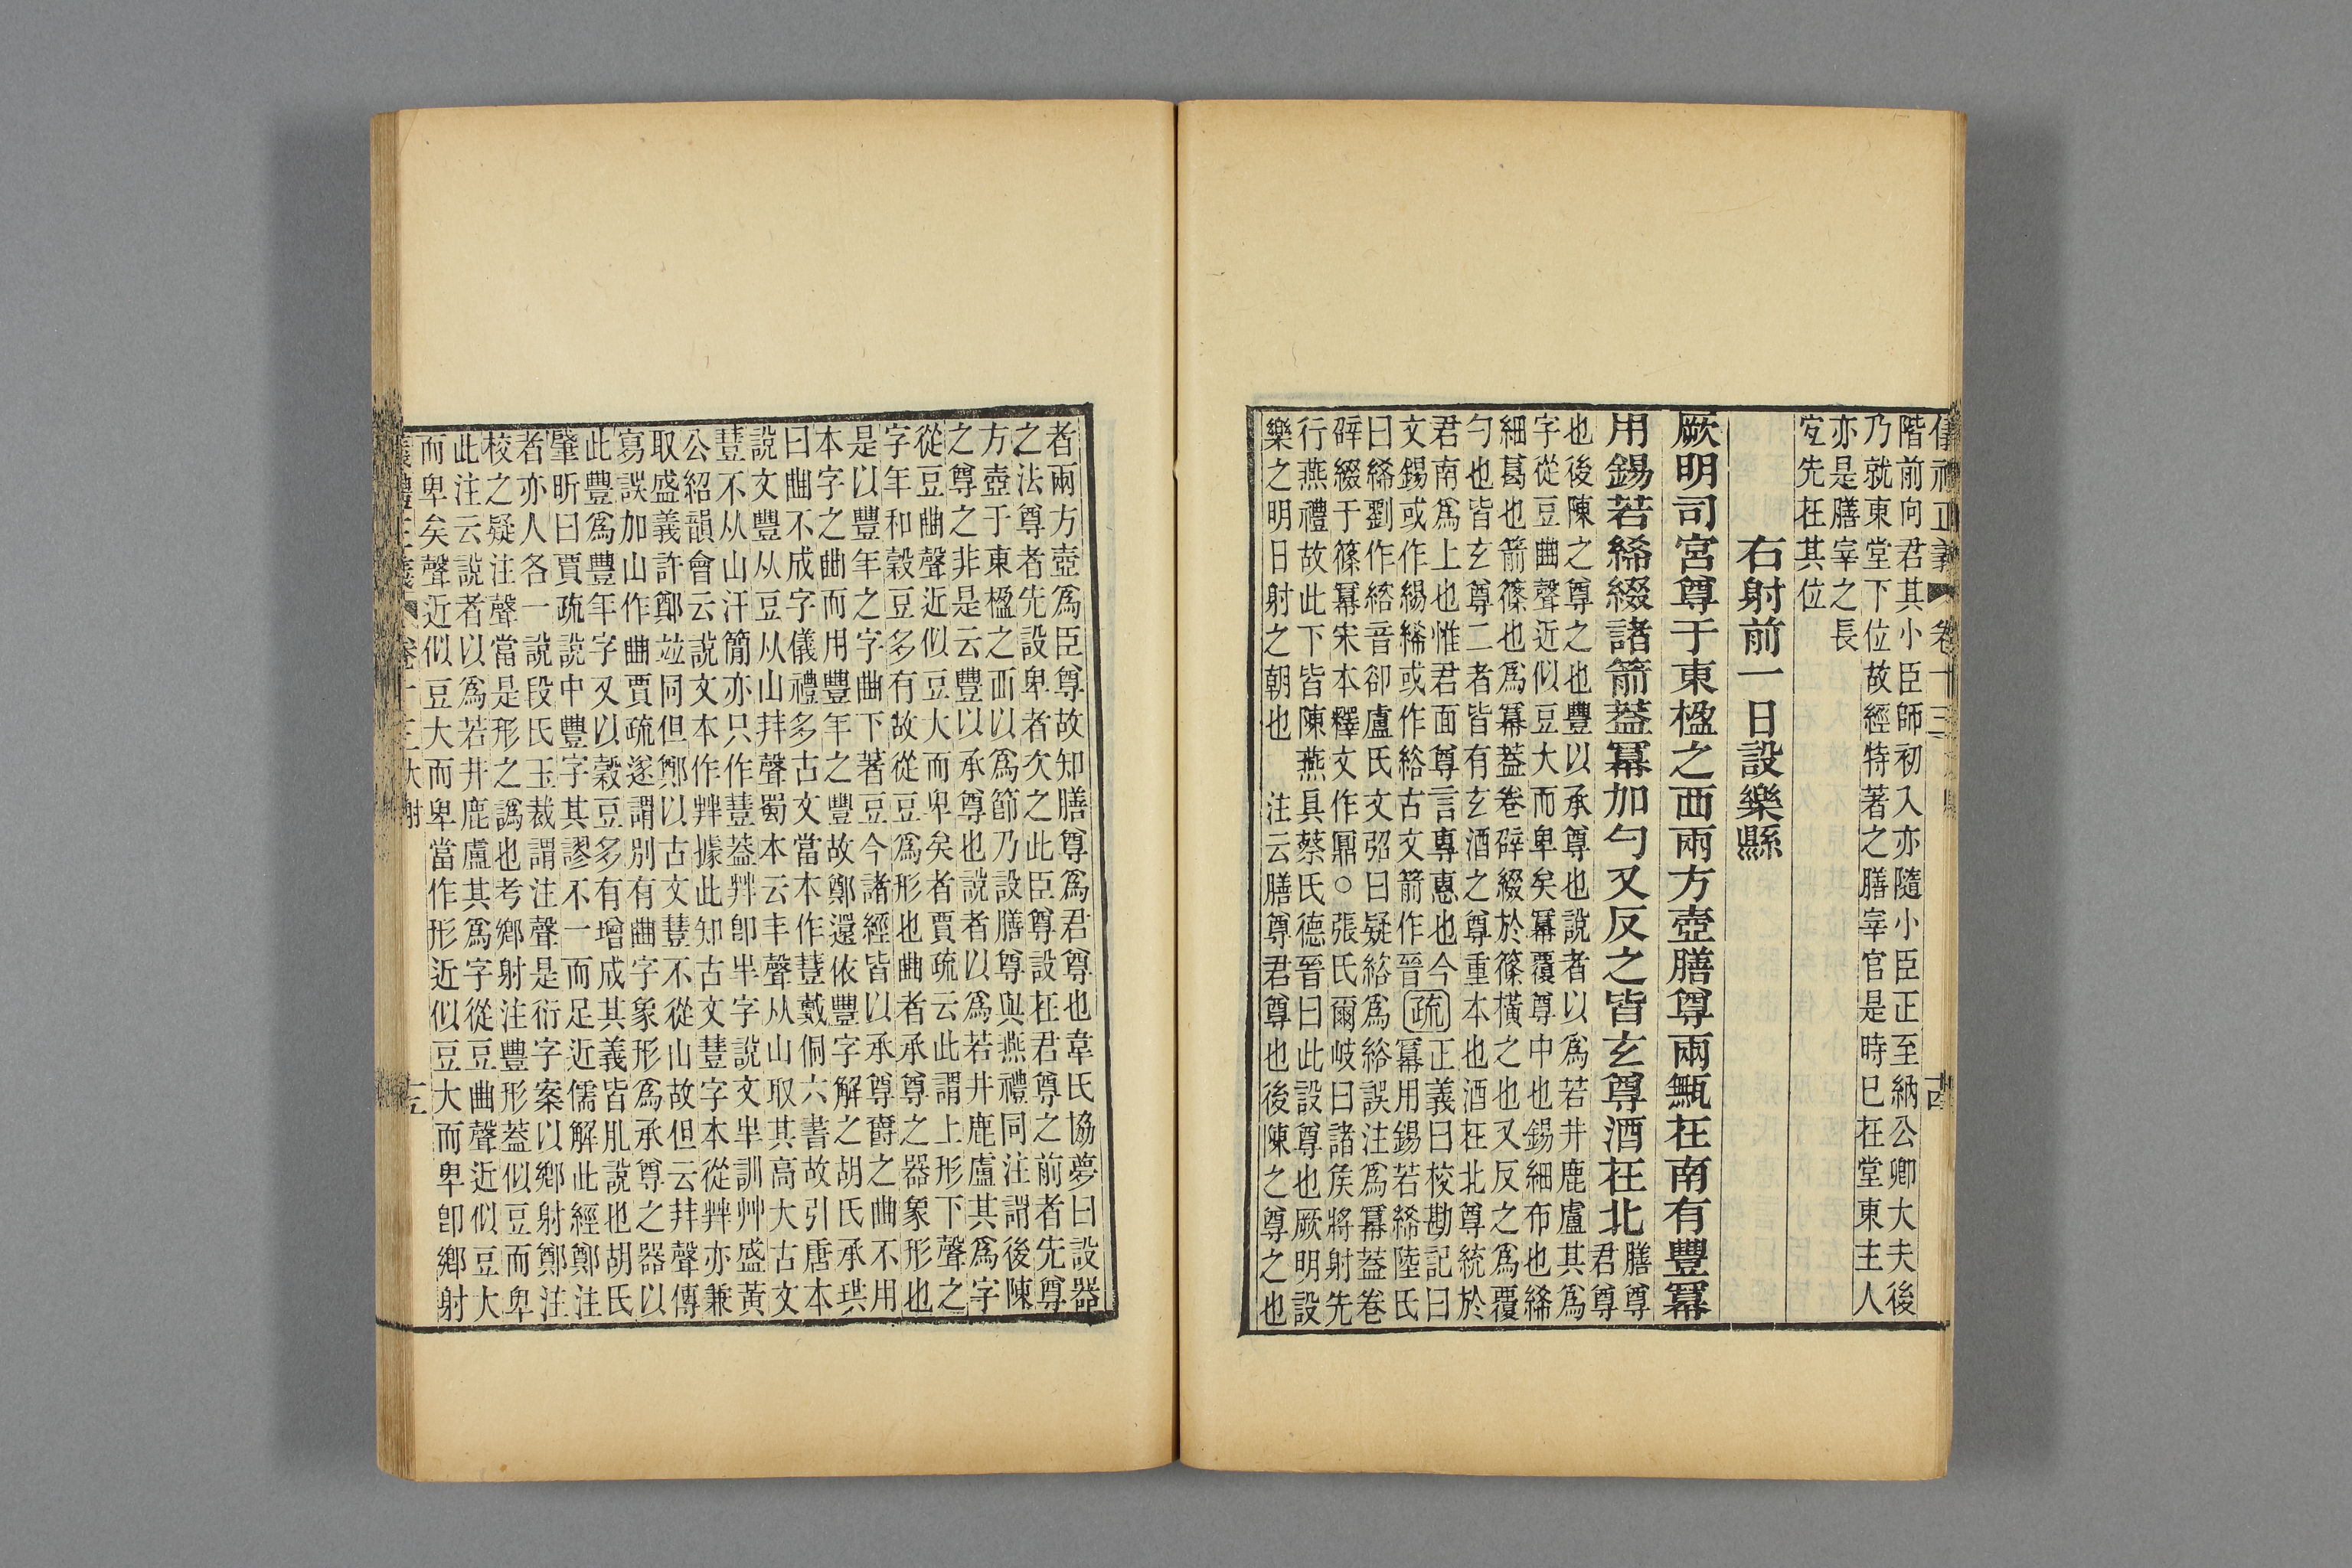 儀禮正義 卷十三
階前向君其小臣師初入亦隨小臣正至納公卿大夫後
乃就東堂下位故經特著之膳宰官是時已在堂東主人
亦是膳宰之長
宐先在其位
右射前一日設樂縣
厥明司宮尊于東楹之西兩方壺膳尊兩甒在南有豐冪
用錫若絺綴諸箭葢冪加勺又反之皆玄尊酒在北
膳尊
君尊
也後陳之尊之也豐以承尊也說者以爲若井鹿盧其爲
字從豆曲聲近似豆大而卑矣冪覆尊巾也錫細布也絺
細葛也箭篠也爲冪葢卷辟綴於篠橫之也又反之爲覆
勺也皆玄尊二者皆有玄酒之尊重本也酒在北尊統於
君南爲上也惟君面尊言專惠也今
文錫或作緆絺或作綌古文箭作晉疏冪用錫若絺陸氏
正義曰校勘記曰
曰絺劉作綌音卻盧氏文弨曰疑綌爲綌誤注爲冪葢卷
辟綴于篠冪宋本釋文作鼏○張氏爾岐曰諸侯將射先
行燕禮故此下皆陳燕具蔡氏德晉曰此設尊也厥明設
樂之明日射之朝也 注云膳尊君尊也後陳之尊之也
者兩方壺爲臣尊故知膳尊爲君尊也韋氏協夢曰設器
之法尊者先設卑者次之此臣尊設在君尊之前者先尊
方壺于東楹之西以爲節乃設膳尊與燕禮同注謂後陳
之尊之非是云豐以承尊也說者以爲若井鹿盧其爲字
從豆曲聲近似豆大而卑矣者賈疏云此謂上形下聲之
字年和穀豆多有故從豆爲形也曲者承尊之器象形也
是以豐年之字曲下著豆今諸經皆以承尊爵之曲不用
本字之曲而用豐年之豐故鄭還依豐字解之胡氏承珙
曰曲不成字儀禮多古文當本作豐戴侗六書故引唐本
說文豐从豆从山𠦪聲蜀本云丰聲从山取其高大古文
豐不从山汗簡亦只作豐葢𠦪卽半字說文半訓艸盛黃
公紹韻會云說文本作𠦪據此知古文豐字本從𠦪亦兼
取盛義許鄭竝同但鄭以古文豐不從山故但云𠦪聲傳
寫誤加山作曲賈疏遂謂別有曲字象形爲承尊之器以
此豐爲豐年字又以穀豆多有增成其義皆肊說也胡氏
肇昕曰賈疏說中豐字其謬不一而足近儒解此經鄭注
者亦人各一說段氏玉裁謂注聲是衍字案以鄉射鄭注
校之疑注聲當是形之譌也考鄉射注豐形葢似豆而卑
此注云說者以爲若井鹿盧其爲字從豆曲聲近似豆大
而卑矣聲近似豆大而卑當作形近似豆大而卑卽鄉射
儀禮正義 卷十三 大射